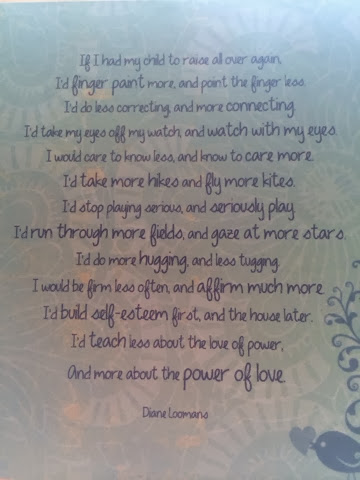 If I had my child to raise all over again,
I'd finger paint more, and point the finger less.
I'd do less correcting, and more connecting.
I'd take my eyes off my watch, and watch with my eyes.
I would care to know less, and know to care more.
I'd take more hikes and fly more kites.
I'd stop playing serious, and seriously play.
I'd run through more fields, and gaze at more stars.
I'd do more hugging, and less tugging.
I would be firm less often, and affirm much more.
I'd build self-esteem first, and the house later.
I'd teach less about the love of power,
And more about the power of love.
Diane Loomans